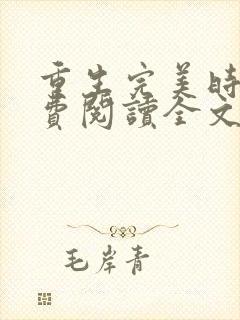 重生完美時
費閱讀全文
毛岸青